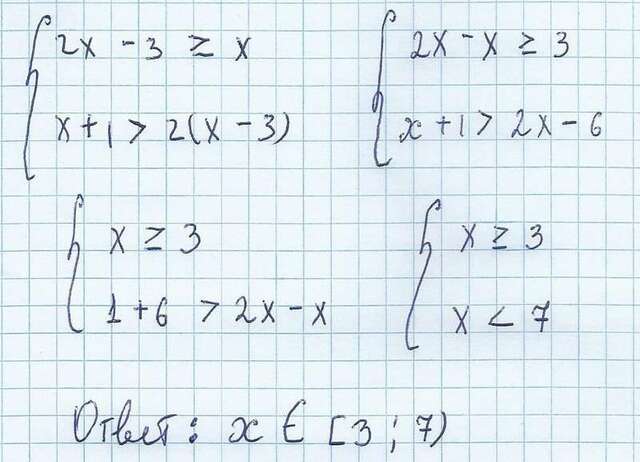 2x - 3 ≥ x
x + 1 > 2(x - 3)
2x - x ≥ 3
x + 1 > 2x - 6
x ≥ 3
1 + 6 > 2x - x
x ≥ 3
x < 7
Ответ: x ∈ [3 ; 7)